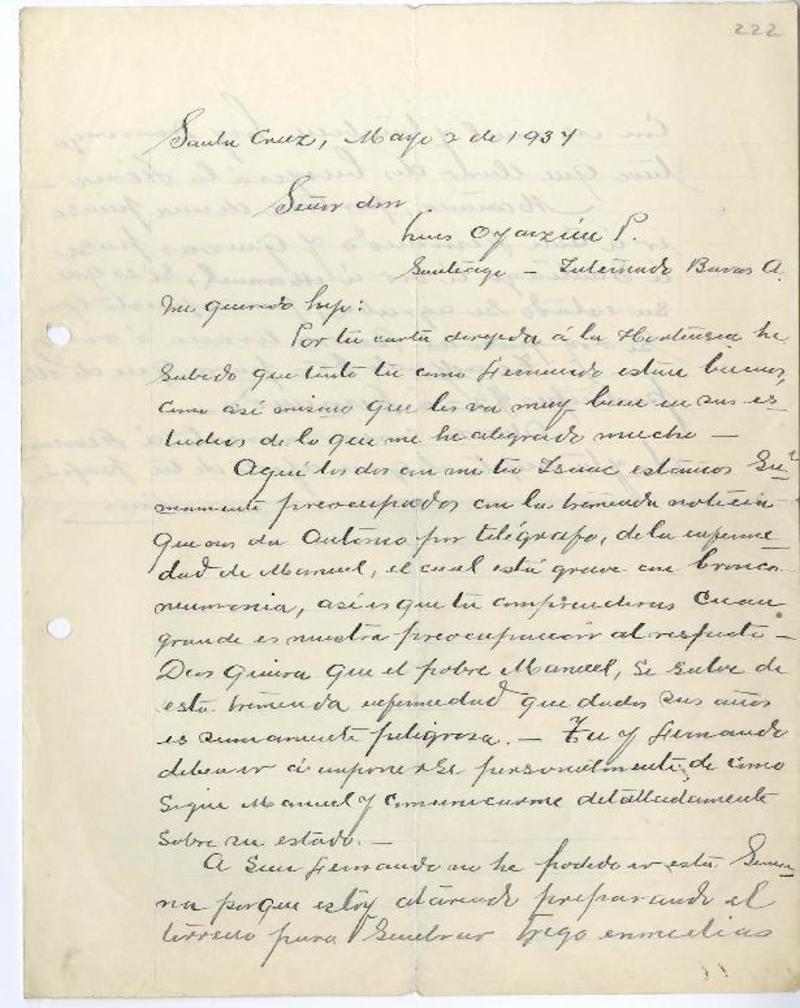 222
Santa Cruz, Mayo 2 de 1937
Señor don
Luis Oyarzún P.
Santiago – Internado Barros A.
Mi querido hijo:
Por tu carta dirijida á la Hortensia he
sabido que tanto tu como Fernando estan buenos,
como así mismo que les va muy bien en sus es-
tudios de lo que me he alegrado mucho —
Aquí los dos con mi tio Isaac estamos Su-
mamente preocupados con la tremenda noticia
que nos da Antonio por telégrafo, de la enferme-
dad de Manuel, el cual está grave con bronco
neumonia, así es que tu comprenderas Cuan
grande es nuestra preocupación al respecto –
Dios quiera que el pobre Manuel, se salve de
esta tremenda enfermedad que dados sus años
es sumamente peligrosa. — Tu y Fernando
deben ir á imponerse personalmente de como
sigue Manuel y comunicarme detalladamente
sobre su estado. —
A San Fernando no he podido ir esta Sema-
na porque estoy atareado preparando el
terreno para sembrar trigo en medias